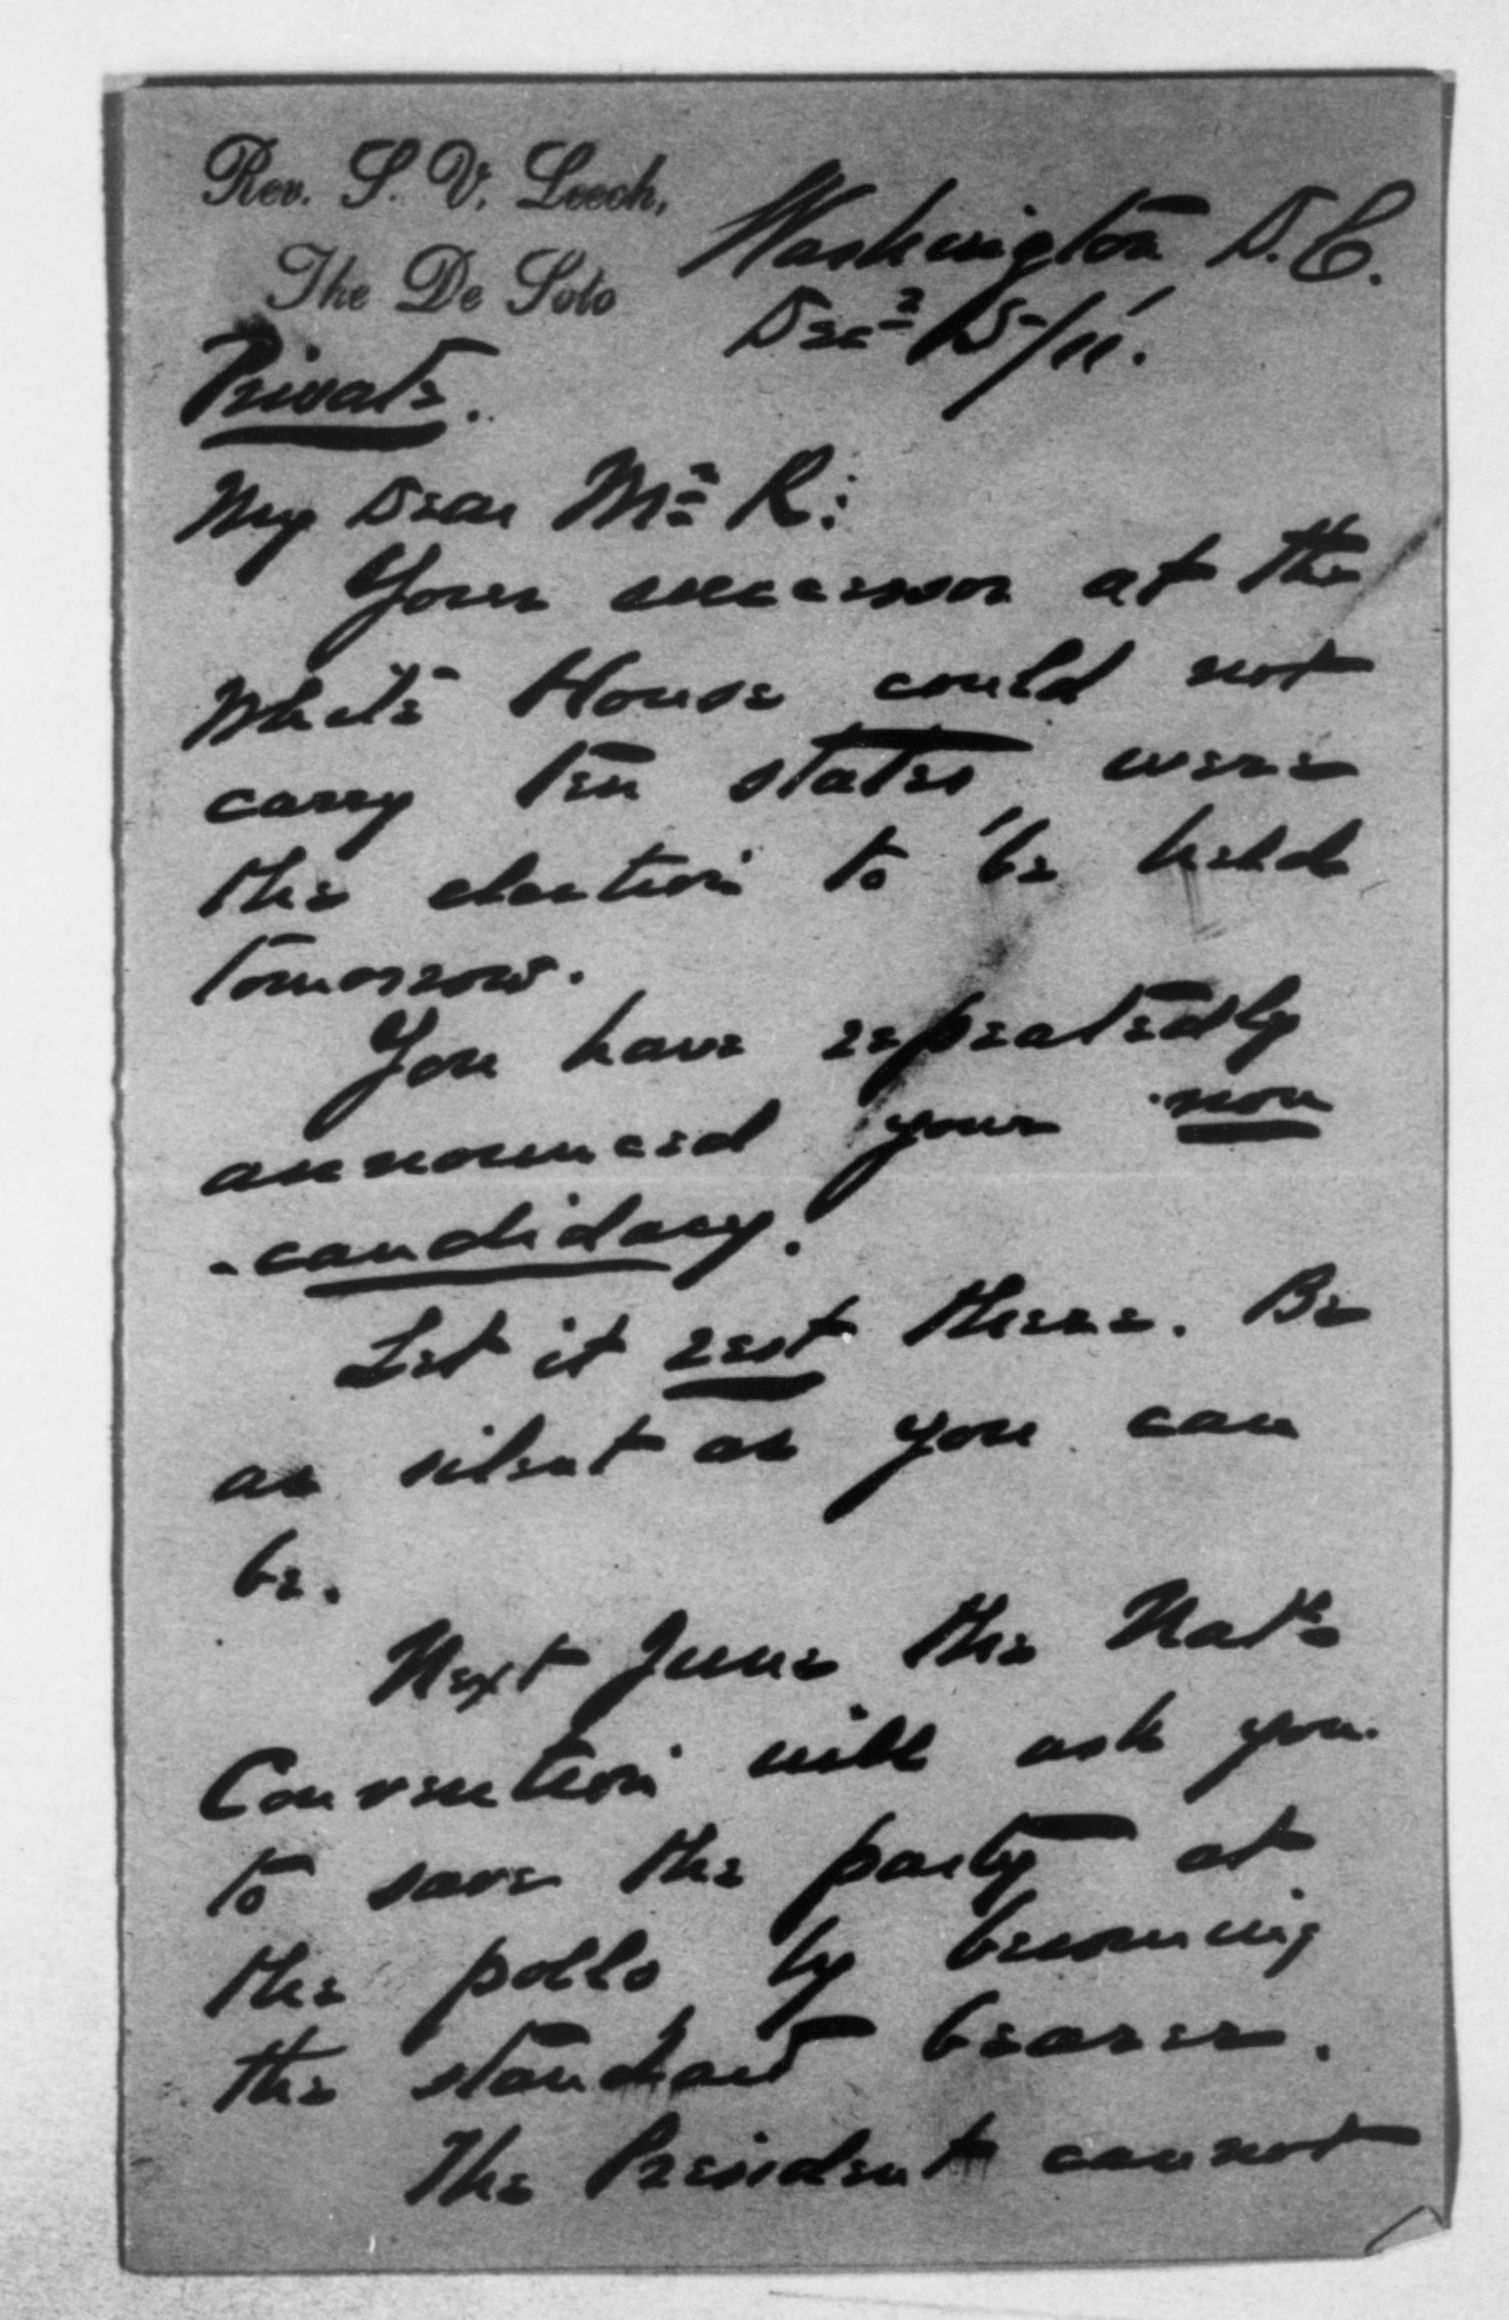 Rev. S. V. Leech,
The De Soto
Washington D.C.
Dec= 15/11.
Private.
My Dear Mr R:
Your successor at the
White House could not
carry ten states, were
the election to be held
tomorrow.
You have repeatedly
announced your non
-candidacy.
Let it rest there. Be
as silent as you can
be.
Next June the Nat'l
Convention will ask you
to save the party at
the polls by becoming
the standard bearer.
The President cannot